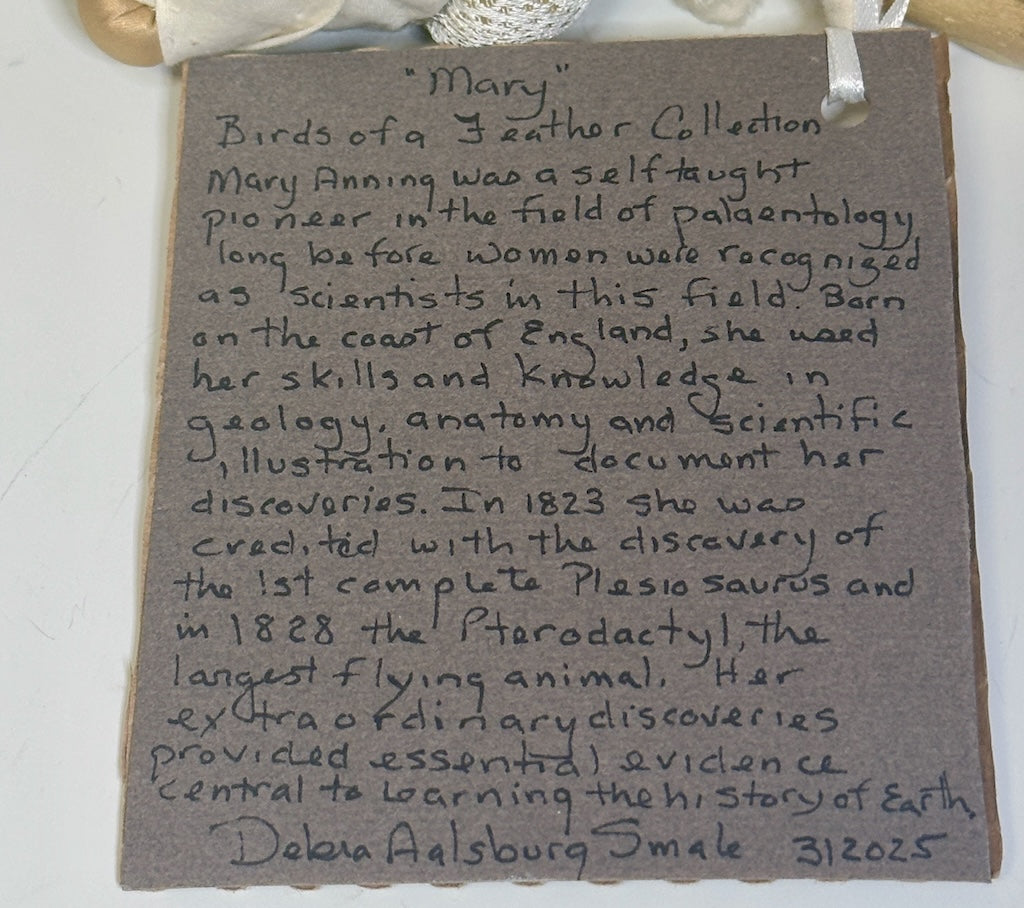 "Mary"
Birds of a Feather Collection
Mary Anning was a self taught
pioneer in the field of palaentology
long before women were recognized
as scientists in this field. Born
on the coast of England, she used
her skills and knowledge in
geology, anatomy and scientific
illustration to document her
discoveries. In 1823 she was
credited with the discovery of
the 1st complete Plesiosaurus and
in 1828 the Pterodactyl, the
largest flying animal. Her
extraordinary discoveries
provided essential evidence
central to learning the history of Earth.
Debra Aalsburg Smale 312025